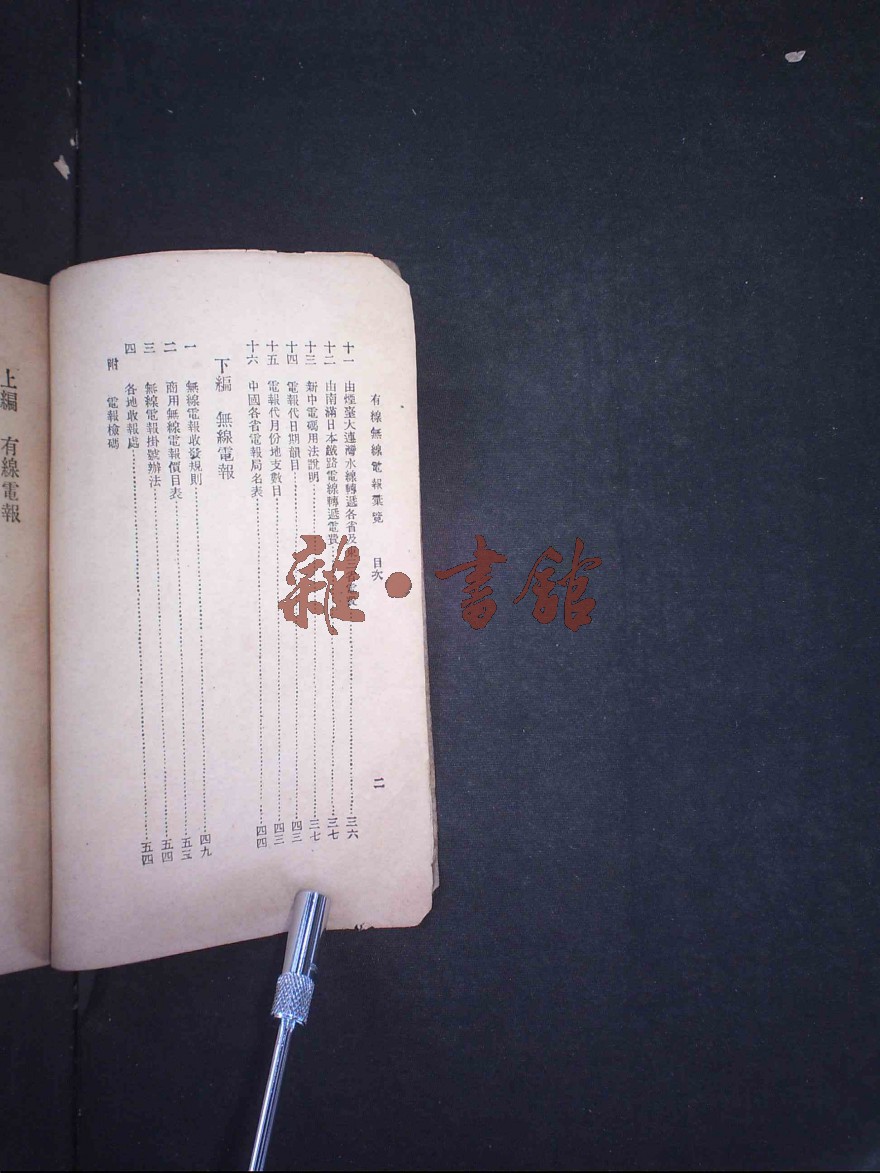 有線無線電報彙覽 目次 二
十一 由煙臺大連灣水線轉遞各省及 三六
十二 由南滿日本鐵路電線轉遞電費 三七
十三 新中電碼用法說明 三七
十四 電報代日期韻目 四三
十五 電報代月份地支數目 四三
十六 中國各省電報局名表 四四
下編 無線電報
一 無線電報收發規則 四九
二 商用無線電報價目表 五三
三 無線電報掛號辦法 五四
四 各地收報處 五四
附 電報檢碼
上編 有線電報
雜·書館